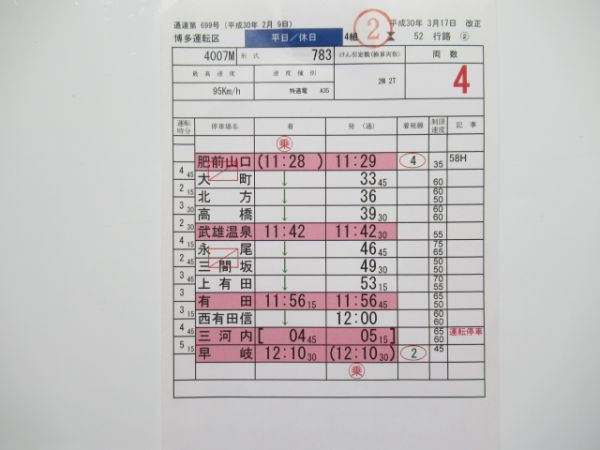 通達第 699号 (平成30年 2月 9日) 平成30年 3月17日 改正
博多運転区 平日/休日 4組 ② 52 行路 ②
4007M 形式 783 けん引定数(換算両数) 両数
最高速度 速度種別 2M 2T 4
95Km/h 特通電 A35
運転時分 停車場名 着 発(通) 着発線 制限速度 記事
乗
肥前山口 (11:28 ) 11:29 4 35 58H
4 45
大町 ↓ 33 45 60
2 15
北方 ↓ 36 60 60
3 30
高橋 ↓ 39 30 60
2 30
武雄温泉 11:42 11:42 30 55
4 15
永尾 ↓ 46 45 75 65
2 45
三間坂 ↓ 49 30 50 50
3 45
上有田 ↓ 53 15 70 55
3
有田 11:56 15 11:56 45 65 50
3 15
西有田信 ↓ 12:00 60
4 45
三河内 [ 04 45 05 15 ] 65 60 運転停車
5 15
早岐 12:10 30 (12:10 30 ) 2 45
乗